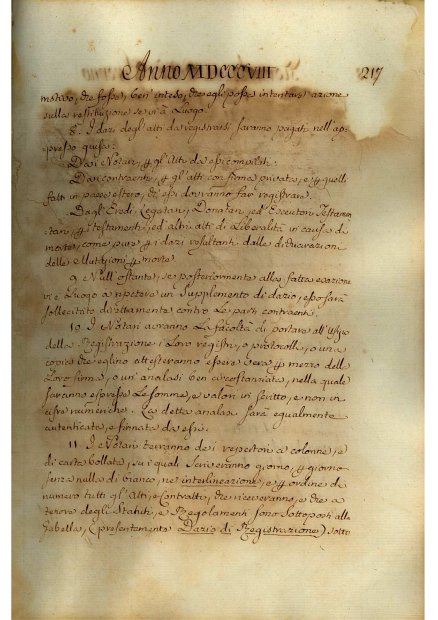 Anno MDCCCVIII 217
motivo, che fosse, ben' inteso, che egli possa intentare azione
sulla restituzione se vi à Luogo.
8. I dazi degli atti da registrarsi saranno pagati nell'ap-
presso guisa:
Dai Notari, per gli Atti da essi compilati.
Dai contraenti, per gli atti con firma privata, e per quelli
fatti in paese estero, che essi dovranno far registrare.
Dagl'Eredi, Legatari, Donatari, ed' Esecutori Testamen-
tari, per i testamenti, ed' altri atti di Liberalità in causa di
morte, come pure per i dazi resultanti dalle dichiarazioni
delle Mutazioni per morte.
9. Null' ostante, se posteriormente alla fatta esazione
vi è Luogo a ripetere un Supplemento di dazio, esso sarà
sollecitato direttamente contro Le parti contraenti.
10. I Notari avranno La facoltà di portare all'Uffizio
della Registrazione i Loro registri, o protocolli, o una
copia che eglino attesteranno essere vera per mezzo della
Loro firma, o un' analasi ben circostanziata, nella quale
saranno espresse Le somme, e valori in scritto, e non in
cifre numeriche. La detta analasi sarà egualmente
autenticata, e firmata da essi.
11. I Notari terranno dei repertori a colonne, e
di carta bollata, su i quali scriveranno giorno, per giorno
senza nulla di bianco, nè interlineazione, e per ordine di
numero tutti gl'Atti, e Contratti, che riceveranno, e che a
tenore degli Statuti, e Regolamenti sono sottoposti alla
Gabella, (presentemente Dazio di Registrazione) sotto